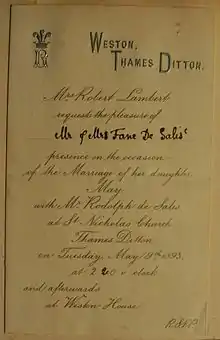 R
WESTON,
THAMES DITTON.
Mrs Robert Lambert
requests the pleasure of
Mr & Mrs Fane De Salis'
presence on the occasion
of the Marriage of her daughter
May
with Mr. Rodolph de Salis
at St. Nicholas Church
Thames Ditton
on Tuesday, May 1893.
at 2 o'clock
and afterwards
at Weston House
R.S.V.P.